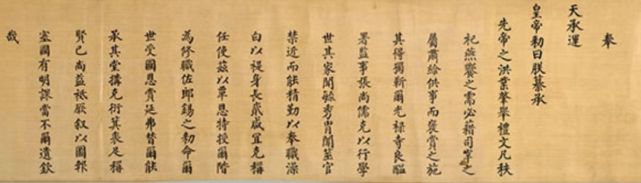 奉
天承運
皇帝勅曰朕纂承
先帝之洪業肇舉禮文凡秩
祀燕饗之需必藉司宰之
屬肅給供事而慶賞之施
其得獨靳爾光祿寺良醞
署監事張尚儒克以行學
世其家聞毓秀胄闈筮官
禁近而能精勤以奉職澡
白以禔身長貳咸宜克稱
任使茲以覃恩特授爾階
為修職佐郎錫之勅命爾
世受國恩賞延弗替爾能
承其堂搆克衍箕裘足稱
賢已尚益祗厥叙以圖報
塞國有明謨當不爾遺欽
哉